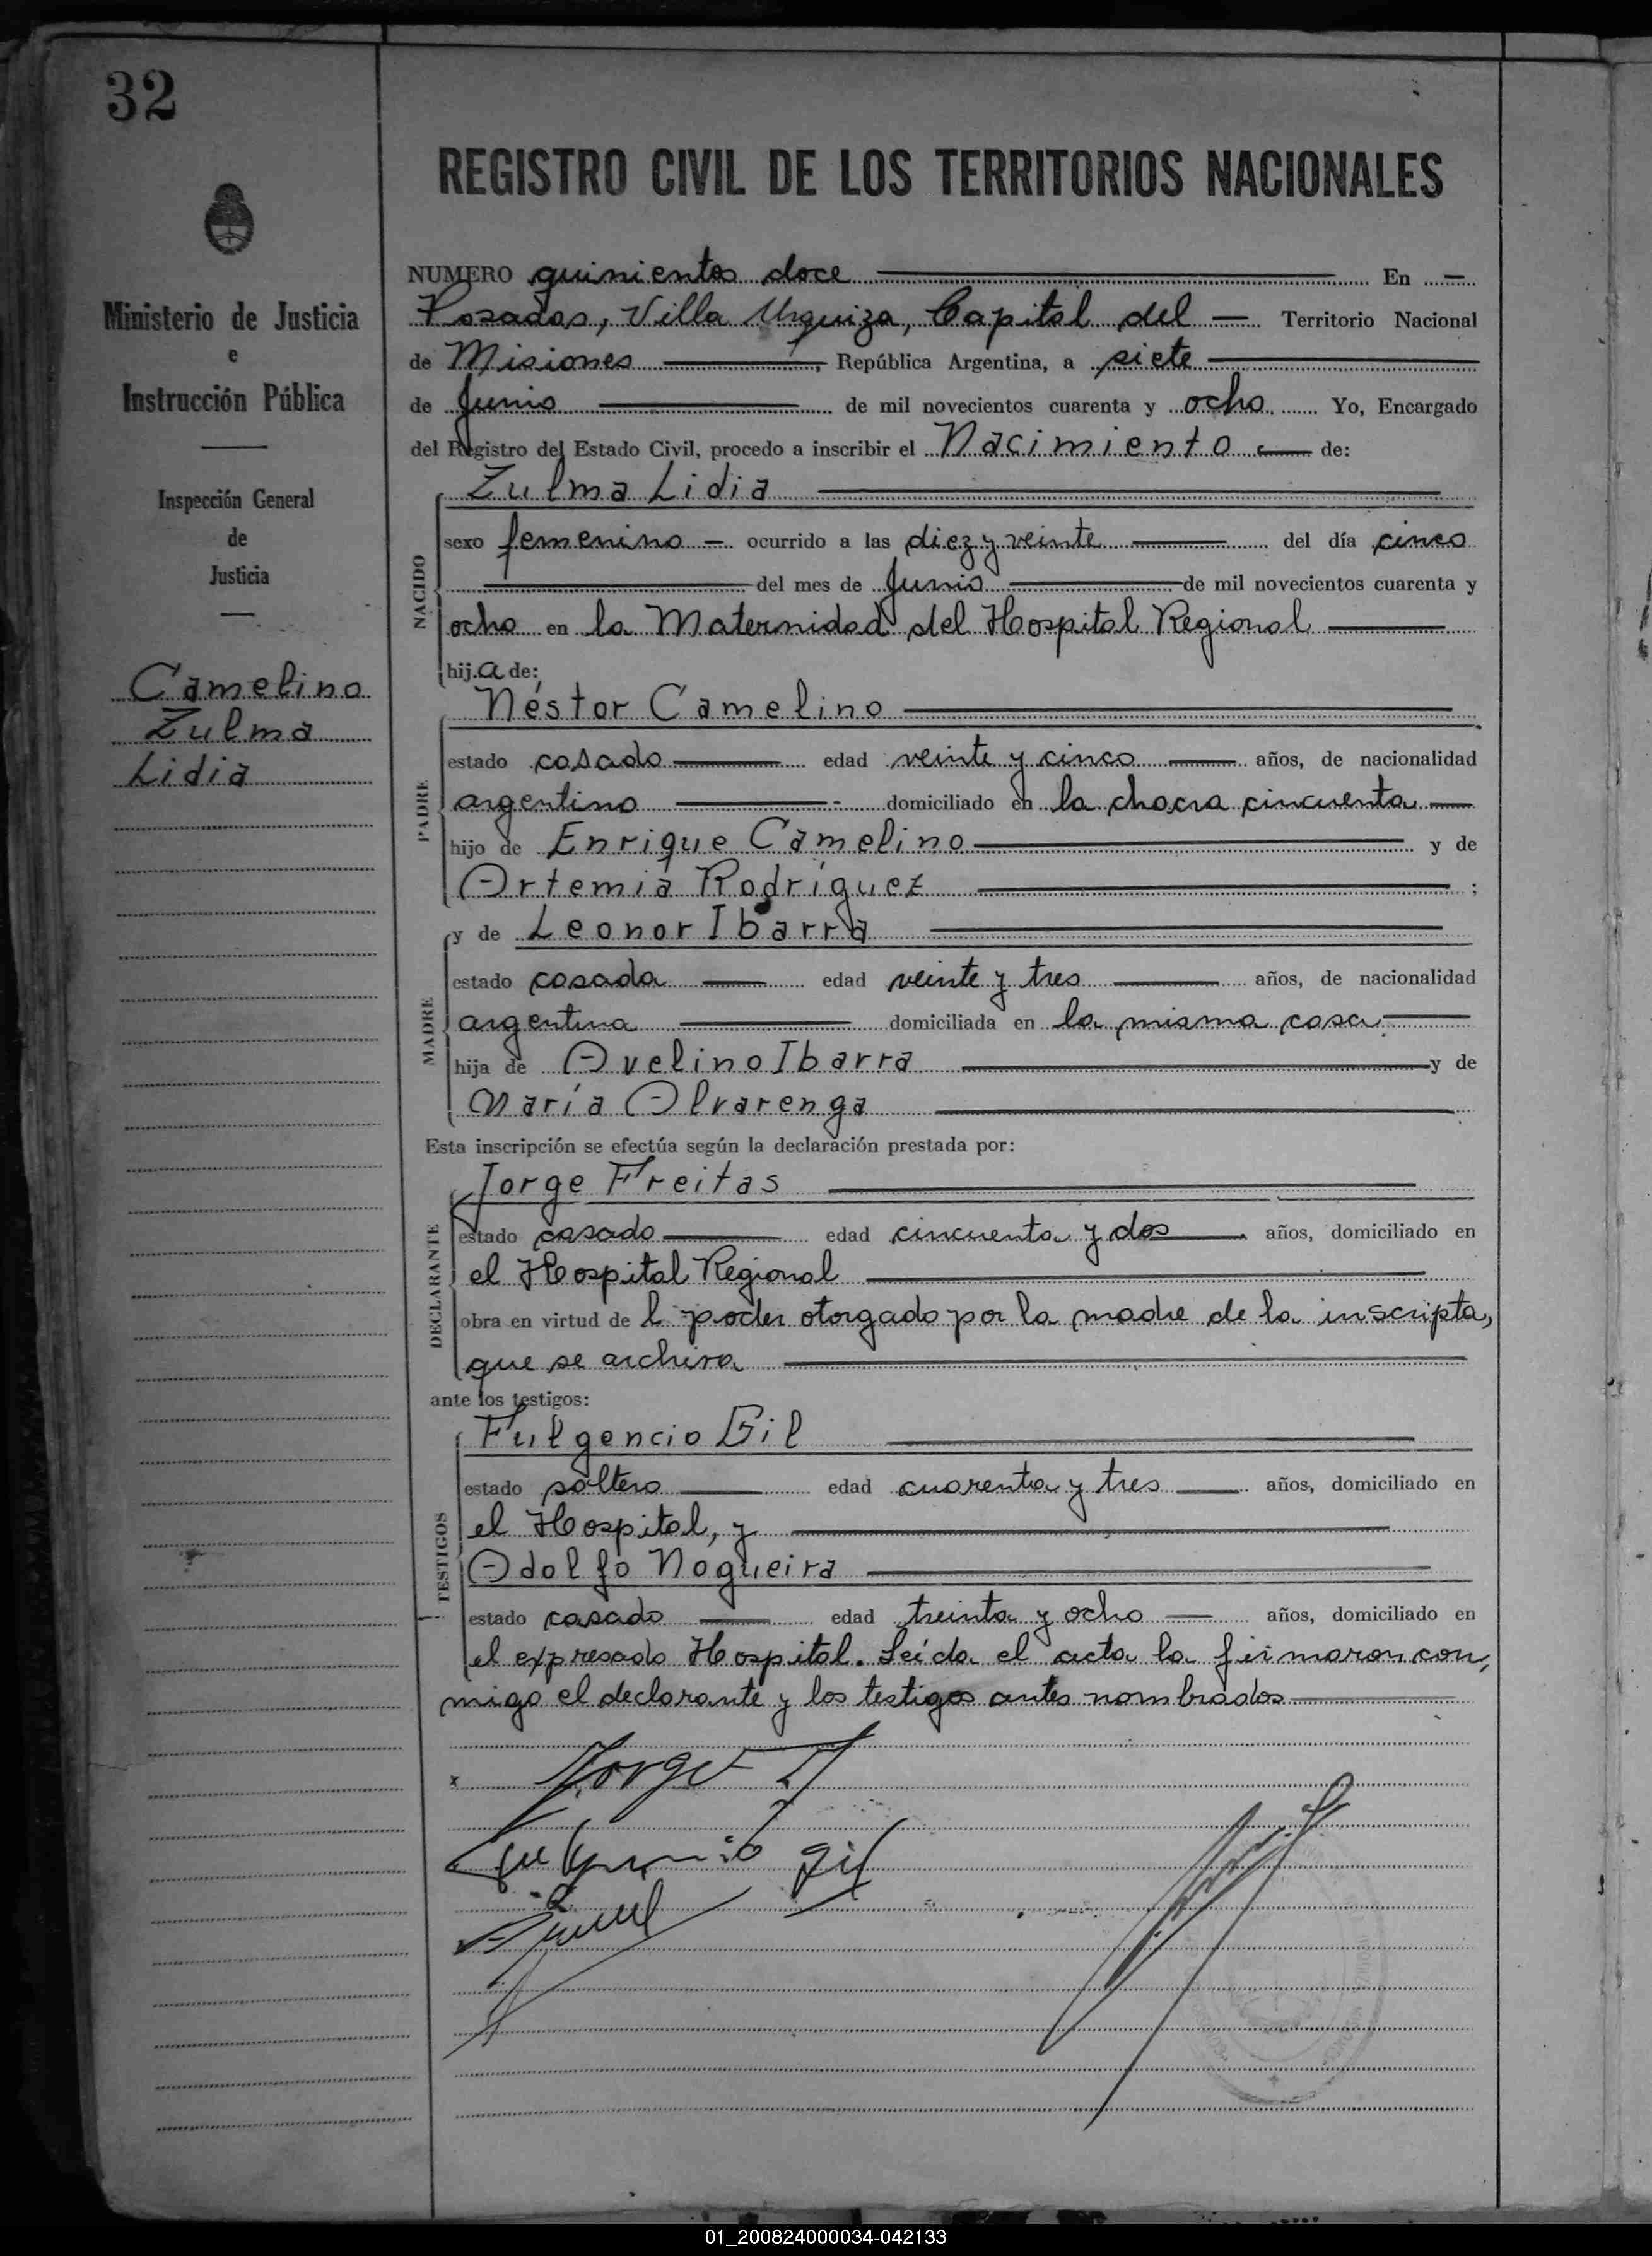 32
REGISTRO CIVIL DE LOS TERRITORIOS NACIONALES
Ministerio de Justicia
e
Instrucción Pública
Inspección General
de
Justicia
Camelino
Zulma
Lidia
NUMERO quinientos doce En
Posadas, Villa Urquiza, Capital del Territorio Nacional
de Misiones, República Argentina, a siete
de Junio de mil novecientos cuarenta y ocho. Yo, Encargado
del Registro del Estado Civil, procedo a inscribir el Nacimiento de:
NACIDO
Zulma Lidia
sexo femenino ocurrido a las diez y veinte del día cinco
del mes de Junio de mil novecientos cuarenta y
ocho en la Maternidad del Hospital Regional
hija de:
PADRE
Néstor Camelino
estado casado edad veinte y cinco años, de nacionalidad
argentino domiciliado en la chacra cincuenta
hijo de Enrique Camelino y de
Artemia Rodríguez ;
MADRE
y de Leonor Ibarra
estado casada edad veinte y tres años, de nacionalidad
argentina domiciliada en la misma casa
hija de Avelino Ibarra y de
María Alvarenga
Esta inscripción se efectúa según la declaración prestada por:
DECLARANTE
Jorge Freitas
estado casado edad cincuenta y dos años, domiciliado en
el Hospital Regional
obra en virtud de l poder otorgado por la madre de la inscripta,
que se archiva
ante los testigos:
TESTIGOS
Fulgencio Gil
estado soltero edad cuarenta y tres años, domiciliado en
el Hospital, y
Adolfo Nogueira
estado casado edad treinta y ocho años, domiciliado en
el expresado Hospital. Leída el acta la firmaron con,
migo el declarante y los testigos antes nombrados
x Jorge
Fulgencio Gil
01_200824000034-042133